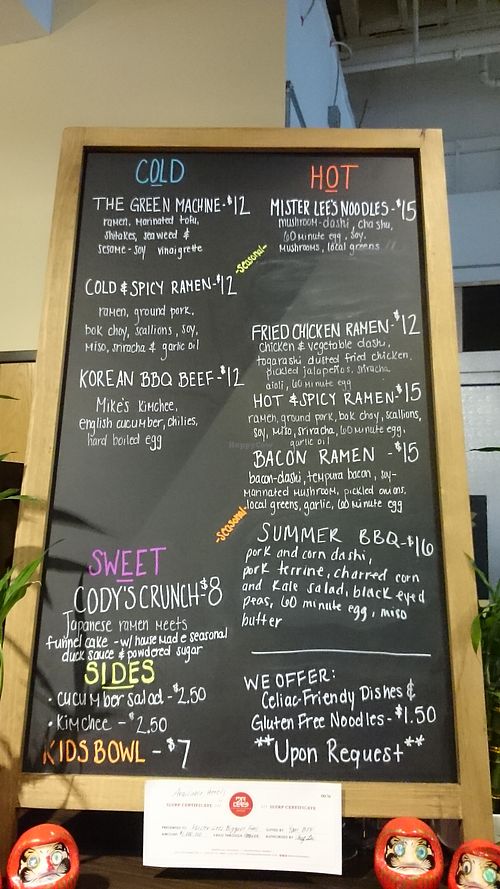 COLD
THE GREEN MACHINE-$12
ramen, marinated tofu,
shitakes, seaweed &
sesame-soy vinaigrette
COLD & SPICY RAMEN-$12
ramen, ground pork,
bok choy, scallions, soy,
miso, sriracha & garlic oil
KOREAN BBQ BEEF-$12
Mike's Kimchee,
english cucumber, chilies,
hard boiled egg
SWEET
CODY'S CRUNCH-$8
Japanese ramen meets
funnel cake -w/ house made seasonal
duck sauce & powdered sugar
SIDES
• cucumber salad - $2.50
• Kimchee - $2.50
KIDS BOWL - $7
HOT
MISTER LEE'S NOODLES-$15
mushroom-dashi, chashu,
60 minute egg, soy,
mushrooms, local greens
-seasonal-
FRIED CHICKEN RAMEN-$12
chicken & vegetable dashi,
togarashi dusted fried chicken,
pickled jalapeños, sriracha
aioli, 60 minute egg
HOT & SPICY RAMEN-$15
ramen, ground pork, bok choy, scallions,
soy, miso, sriracha, 60 minute egg,
garlic oil
BACON RAMEN - $15
bacon-dashi, tempura bacon, soy-
marinated mushroom, pickled onions,
local greens, garlic, 60 minute egg
-seasonal-
SUMMER BBQ-$16
pork and corn dashi,
pork terrine, charred corn
and kale salad, black eyed
peas, 60 minute egg, miso
butter
WE OFFER:
Celiac-Friendy Dishes &
Gluten Free Noodles-$1.50
**Upon Request**
HappyCow
Available Here!
SLURP CERTIFICATE
SLURP CERTIFICATE
PRESENTED TO